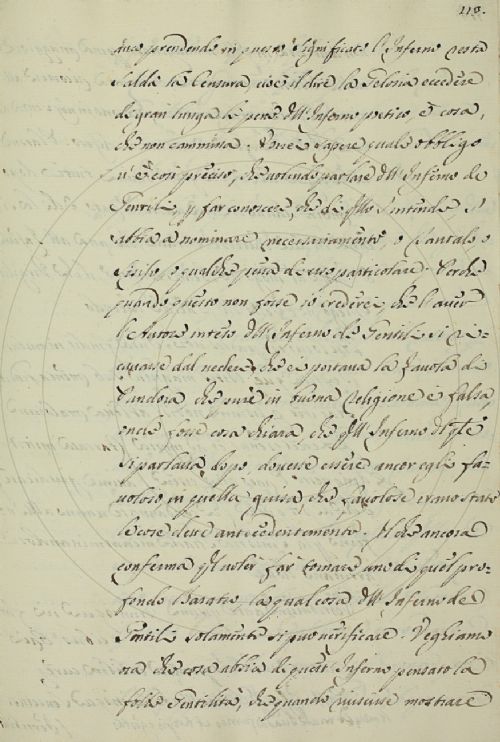 118.
prendendo in questo significato l'Inferno resta
salda la Censura, cioè il dire la Gelosia eccedere
di gran lunga le pene dll' Inferno poetico è cosa,
che non cammina. Vorrei sapere quale obbligo
v'è così preciso, che volendo parlare dll' Inferno de
Gentili, p far conoscere, che di qllo s'intende, s'
abbia a nominare necessariamente, o Tantalo o
qualche pena di esso particolare. Perché
quado questo non fosse io crederei, che l'aver
l'Autore inteso dll' Inferno de Gentili si ri=
cavasse dal vedere, che ei portava la favola di
Pandora, che pure in buona religione è falsa
onde fosse cosa chiara, che qll' Inferno di
si parlava dopo dovesse essere ancor egli fa=
voloso in quella guisa, che favolose erano state
le cose dette antecedentemente. Il che ancora
conferma il voler far tornare uno di quel pro=
fondo Baratro, la qual cosa dll' Inferno de
Gentili solamente si può verificare. Veghiamo
ora che cosa abbia di quest' Inferno pensato la
folle Gentilità, che quando mostrare